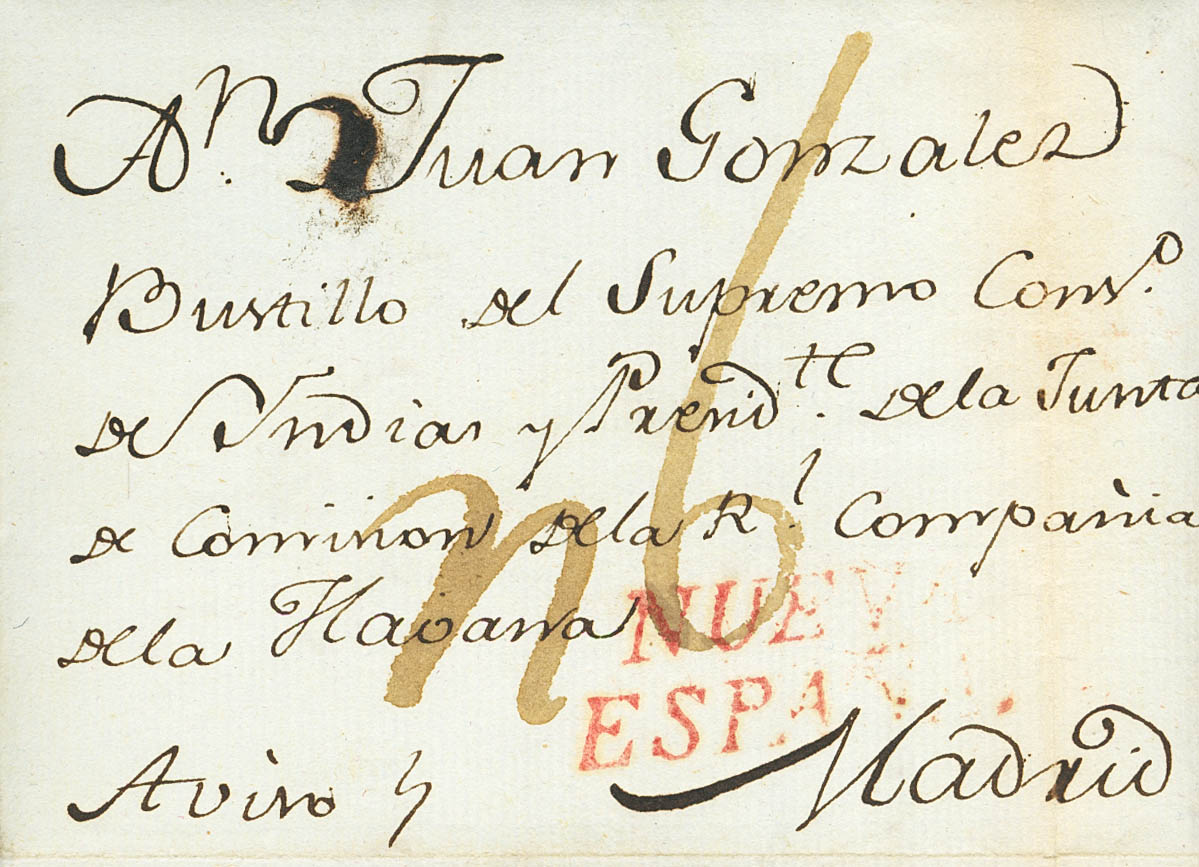 A Dn. Juan Gonzalez
Bustillo del Supremo Consº.
de Yndias y Presidte. de la Junta
de Comision de la Rl. Compañia
de la Havana
NUEVA
ESPAÑA.
Aviso
Madrid